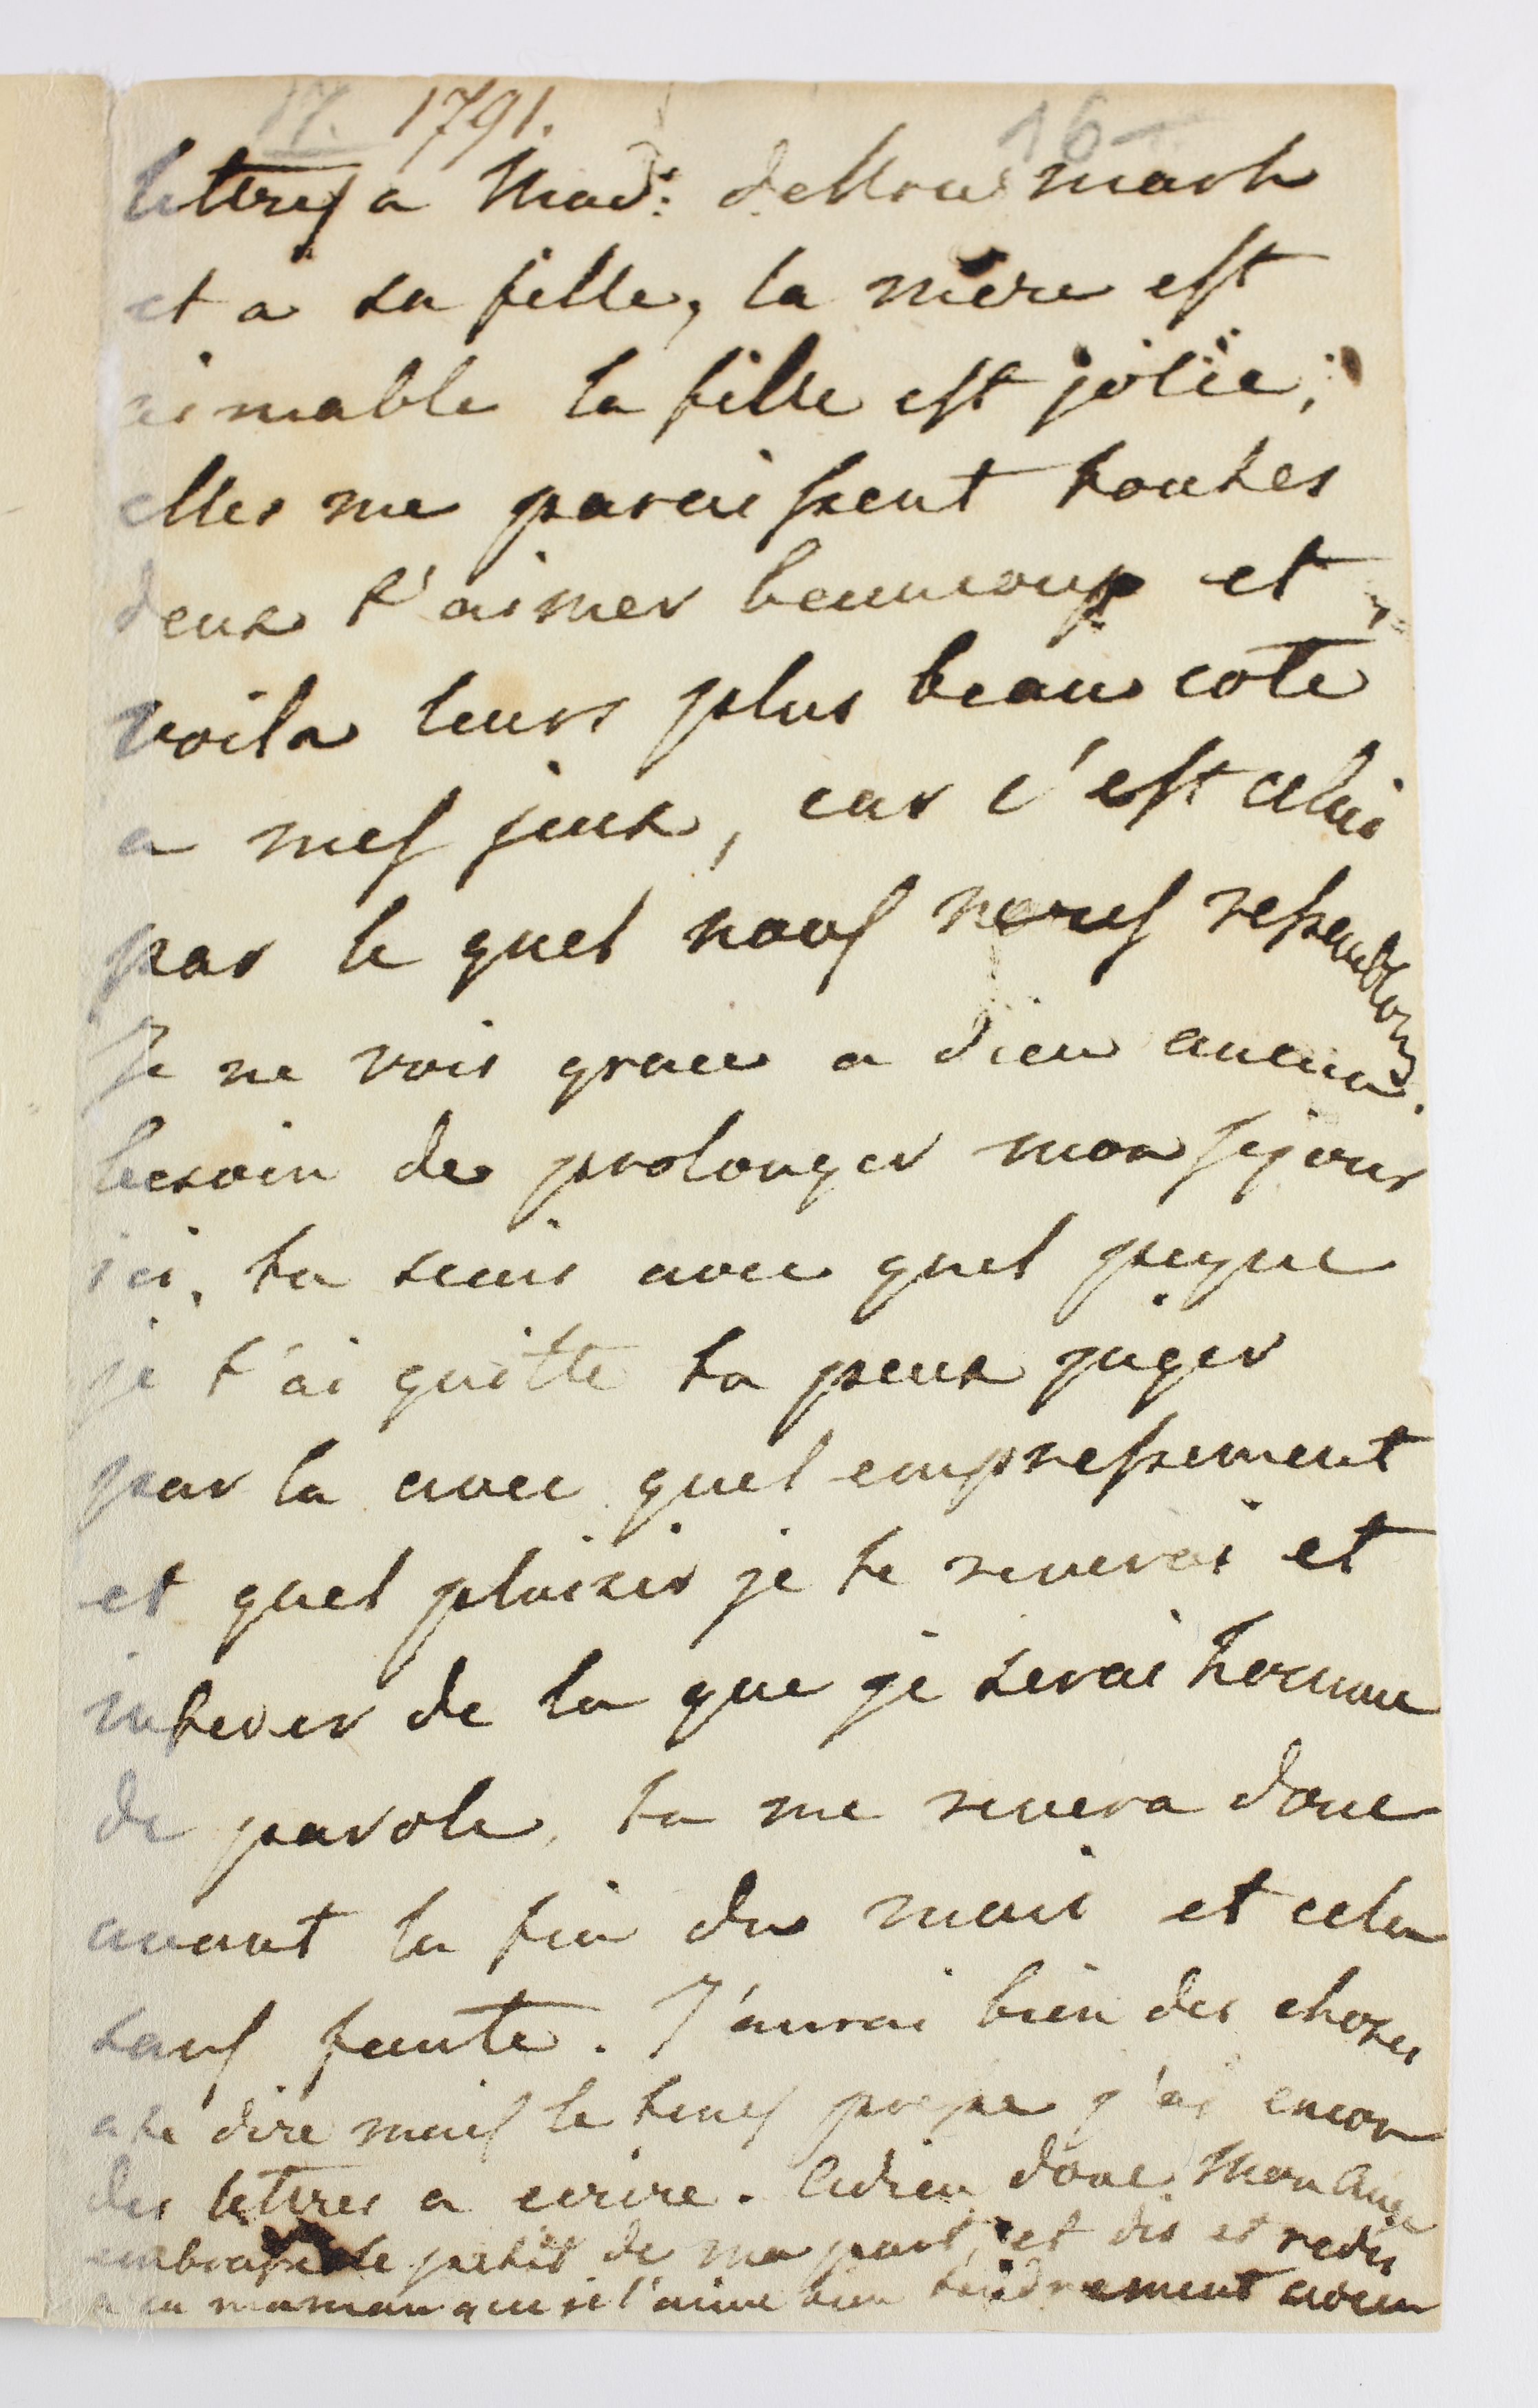 17. 1791. 16
lettres a Mad:
et a sa fille, la mere est
aimable la fille est jolïe;
elles me paraissent toutes
deux t'aimer beaucoup et
voila leurs plus beau coté
a mes jeux, car c'est celui
par le quel nous nous ressemblons
Je ne vois grace a dieu aucun
besoin de prolonger mon sejour
ici, tu scais avec quel peyne
je t'ai quitte tu peux juger
par la avec quel empressement
et quel plaisir je te reverai et
inferer de la que je serai homme
de parole, tu me revera donc
avant la fin du mois et cela
sans faute. J'aurai bien des choses
a te dire mais le tems presse j'ai encor
des lettres a ecrire. Adieu donc Mon Ange
embrasse le petit de ma part, et dis et redis
a sa maman que je l'aime bien tendrement